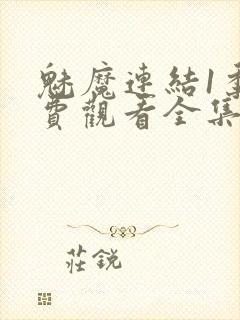 魅魔連結1季
費觀看全集
莊銳